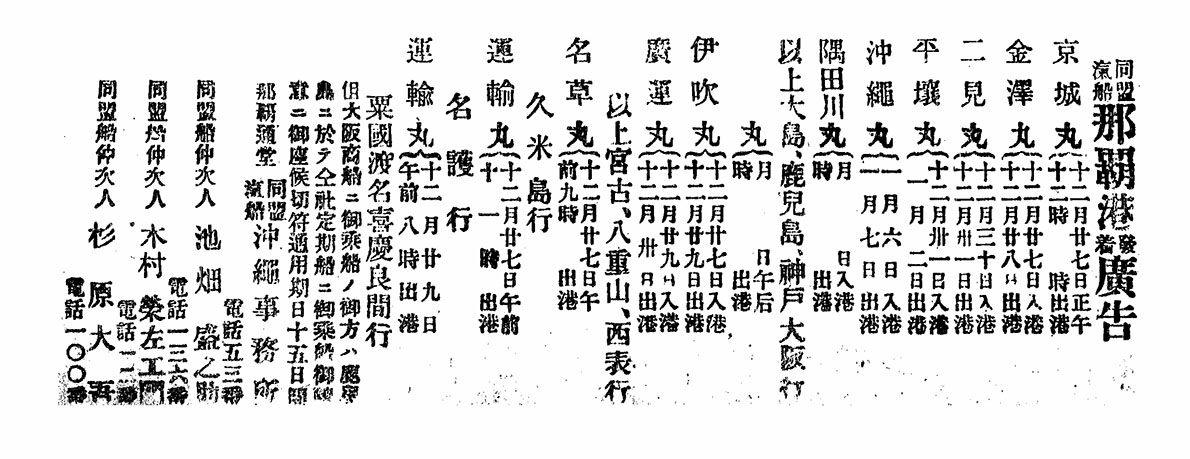 同盟汽船那覇港發着廣告
京城丸 十二月廿七日正午 十二時 時出港
金澤丸 十二月廿七日入港 十二月廿八日出港
二見丸 十二月三十日入港 十二月卅一日出港
平壤丸 十二月卅一日入港 一月二日出港
沖繩丸 一月六日入港 一月七日出港
隅田川丸 月 日入港 時 出港
以上大島、鹿兒島、神戸大阪行
丸 月 日午后 時 出港
伊吹丸 十二月廿七日入港 十二月廿九日出港
廣運丸 十二月廿九日入港 十二月卅日出港
以上宮古、八重山、西表行
名草丸 十二月廿七日午前九時 出港
久米島行
運輸丸 十二月廿七日午前十一時 出港
名護行
運輸丸 十二月廿九日午前八時出港
粟國渡名喜慶良間行
但大阪商船ニ御乘船ノ御方ハ鹿兒
島ニ於テ仝社定期船ニ御乘船御
意ニ御座候切符通用期日十五日間
那覇通堂 同盟汽船沖繩事務所
電話五三番
同盟船仲次人 池畑盛之助
電話一三六番
同盟船仲次人 木村榮左工門
電話一二番
同盟船仲次人 杉原大吾
電話一〇〇番